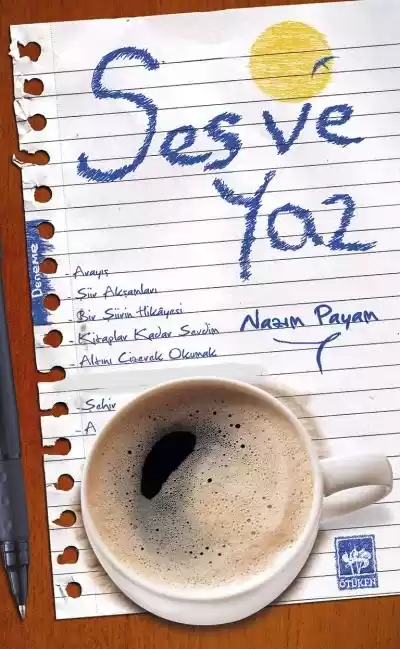 Ses ve
Yaz
Deneme
- Arayış
- Şiir Akşamları
- Bir Şiirin Hikâyesi
- Kitaplar Kadar Sevdim
- Altını Çizerek Okumak
Nazım Payam
- Şehir
- A
ÖTÜKEN